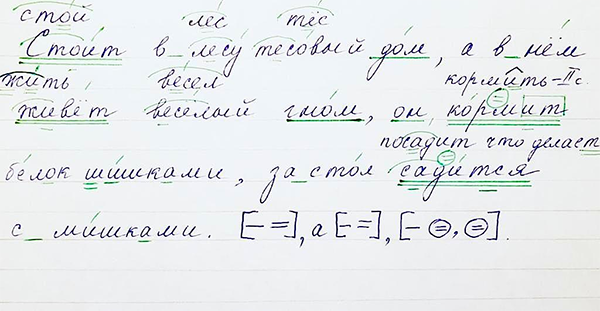 стой лес тёс
Стоит в лесу тесовый дом, а в нём
жить весел кормить – II с.
живёт весёлый гном, он кормит
посадит что делает
белок шишками, за стол садится
с мишками. [– =], а [– =], [– =, =].